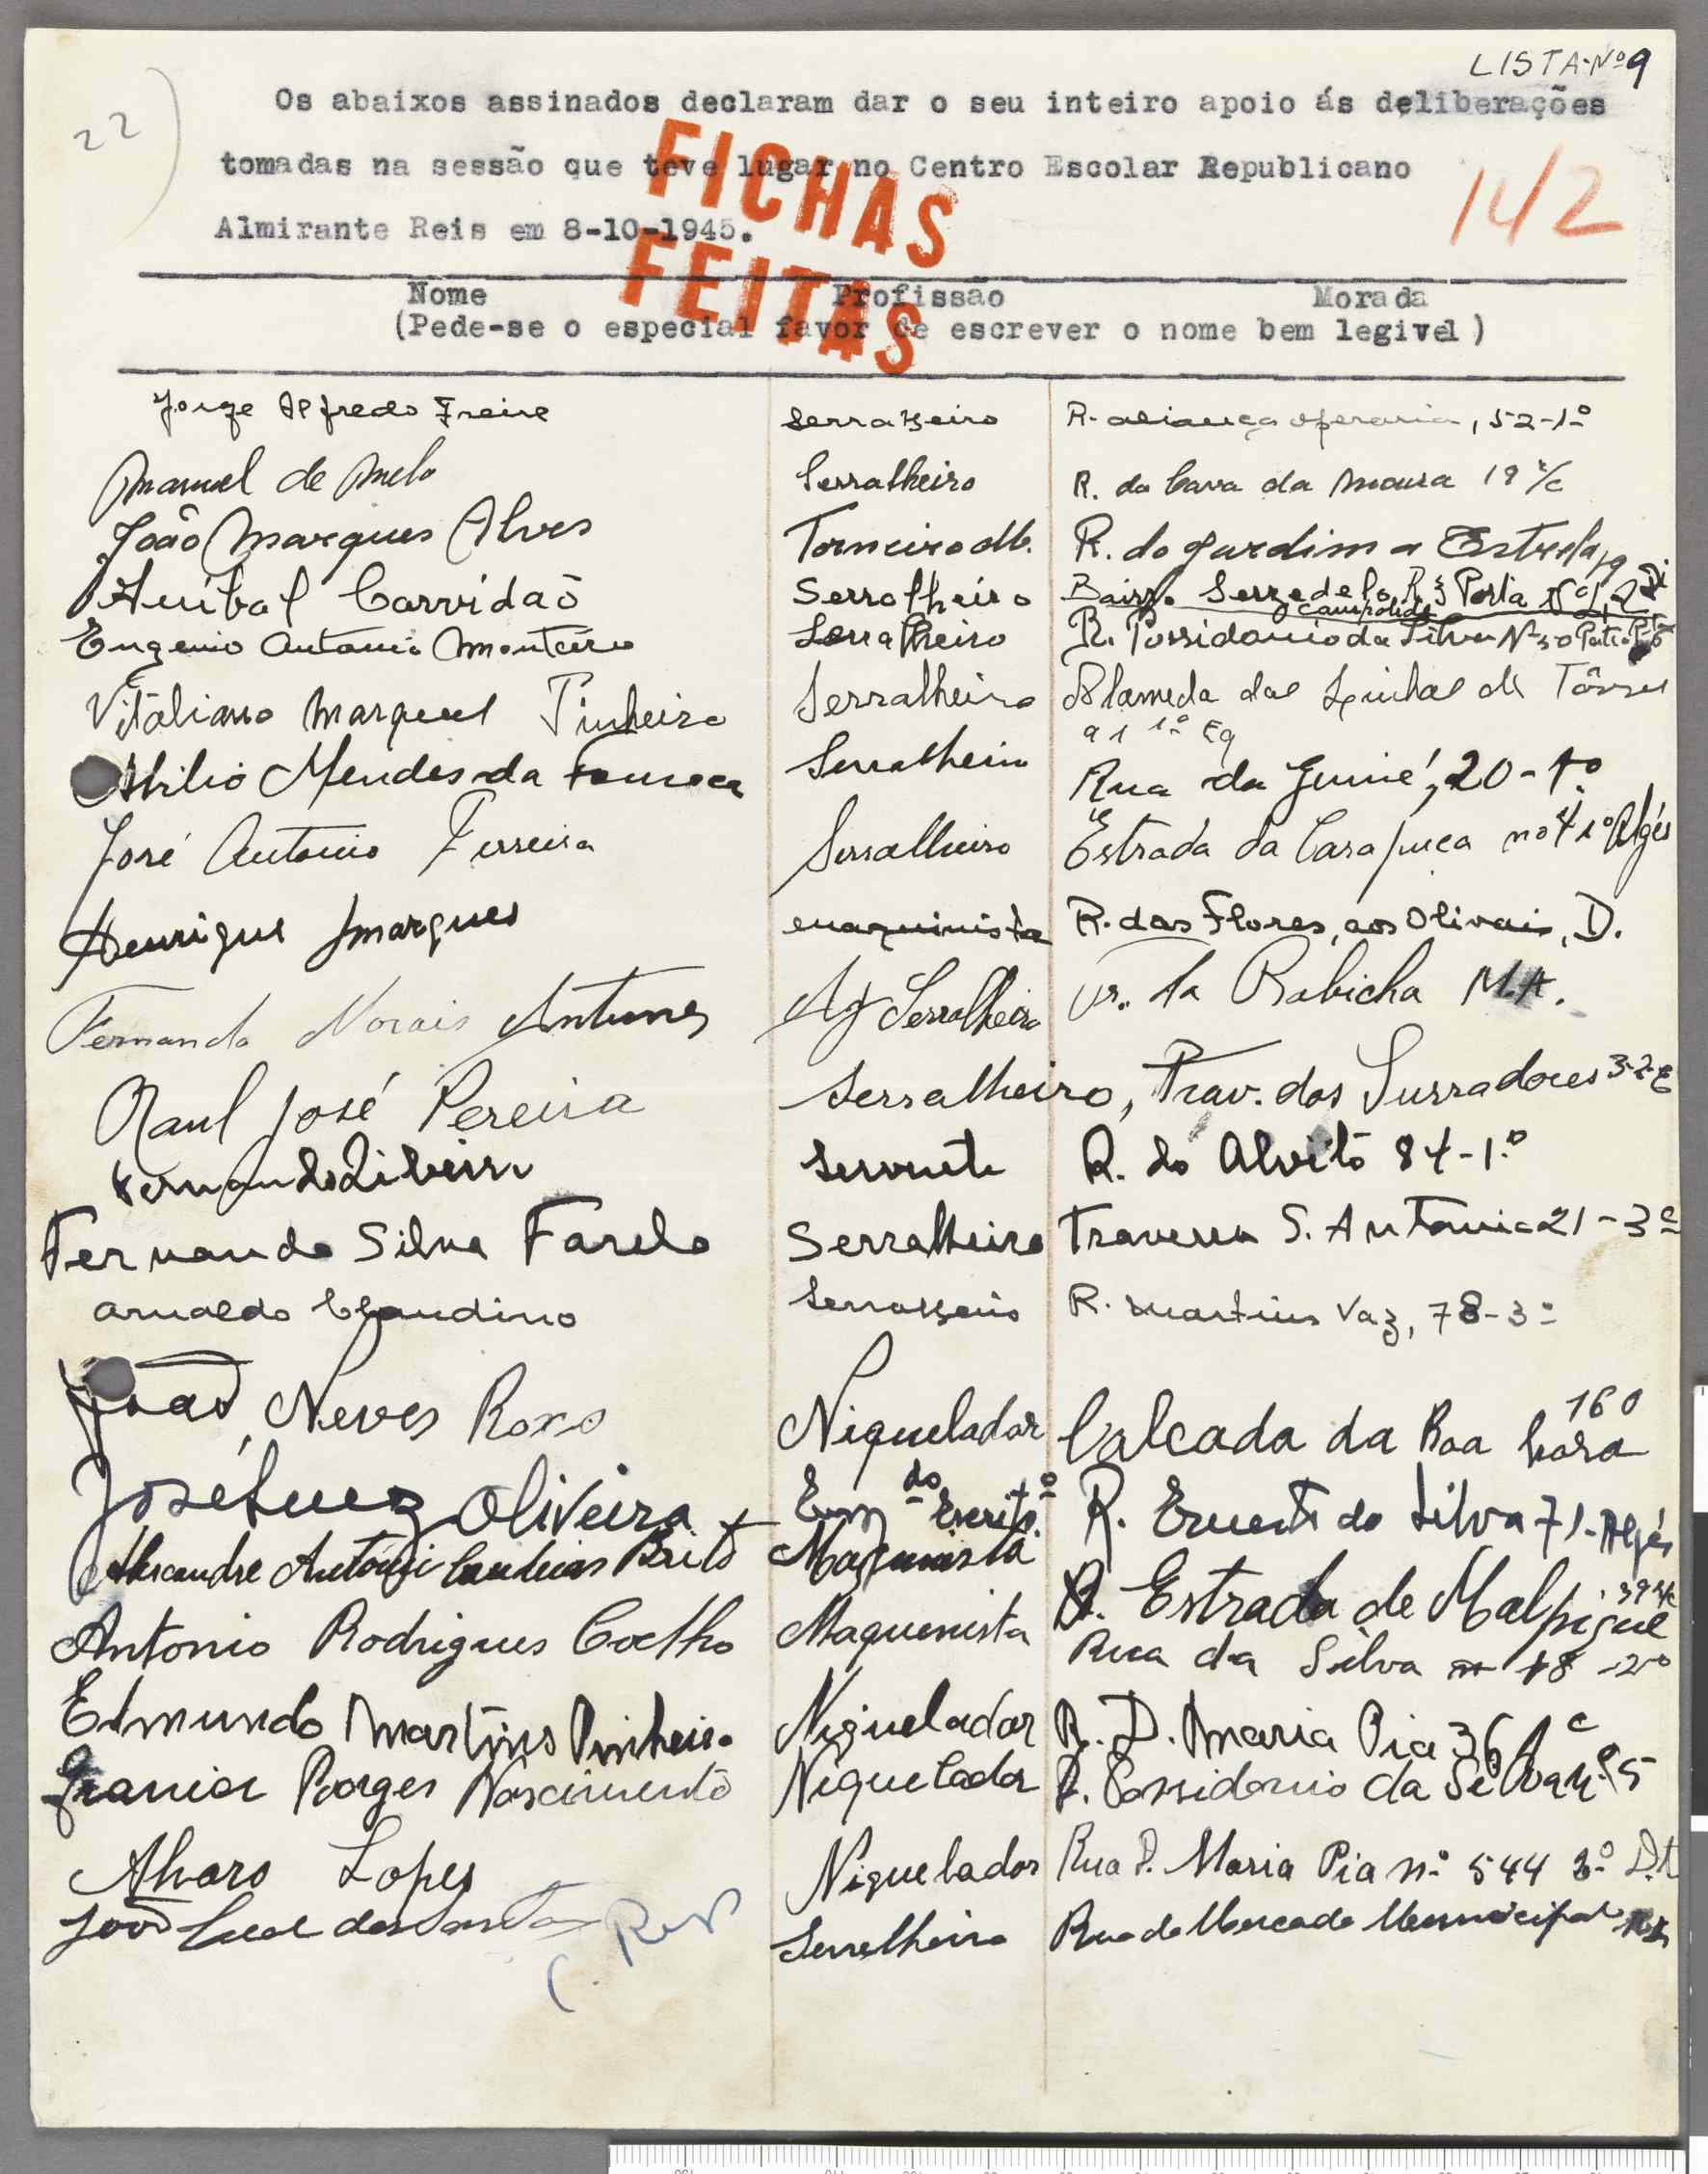 LISTA-Nº 9
22)
Os abaixos assinados declaram dar o seu inteiro apoio ás deliberações
tomadas na sessão que teve lugar no Centro Escolar Republicano
142
Almirante Reis em 8-10-1945.
FICHAS
FEITAS
Nome Profissão Morada
(Pede-se o especial favor de escrever o nome bem legivel)
Jorge Alfredo Freire Serralheiro R. aliança operaria, 52-1º
Manuel de Melo Serralheiro R. da Cova da Moura 19 r/c
João Marques Alves Torneiro M. R. do Jardim a Estrela, 19
Anibal Carvidaõ Serralheiro Bairro Serzedelo, R. 3 Porta Nº 2
Campolide
Eugenio Antonio Monteiro Serralheiro R. Possidonio da Silva Nº 30
Vitaliano Marques Pinheiro Serralheiro Alameda das Linhas de Tôrres
91 1º Eq
Abilio Mendes da Fonseca Serralheiro Rua da Guiné, 20-1º
José Antonio Ferreira Serralheiro Estrada da Carapuca nº 4 1º Algés
Henrique Marques maquinista R. das Flores, aos Olivais, D.
Fernando Morais Antunes Aj Serralheiro Tr. da Rabicha M.A.
Raul José Pereira Serralheiro, Trav. dos Surradores 3-2-E
Fernando Ribeiro Servente R. do Alvito 84-1.º
Fernando Silva Farelo Serralheiro Travessa S. Antonio 21-3º
Arnaldo Claudino Serralheiro R. Martins Vaz, 78-3º
João Neves Roxo Niquelador Calcada da Boa hora 160
José Luez Oliveira Emdo Escritº. R. Ernesto da Silva 71-Algés
Alexandre António Brito Maquinista R. Estrada de Malpique
Antonio Rodrigues Coelho Maquenista Rua da Silva 18-2º
Edmundo Martins Pinheiro Niquelador R. D. Maria Pia 36
Borges Nascimento Niquelador R. Possidonio da Silva
Alvaro Lopes Niquelador Rua D. Maria Pia n.º 544 3º D.t
João Leal dos Santos Serralheiro Rua do Mercado Municipal